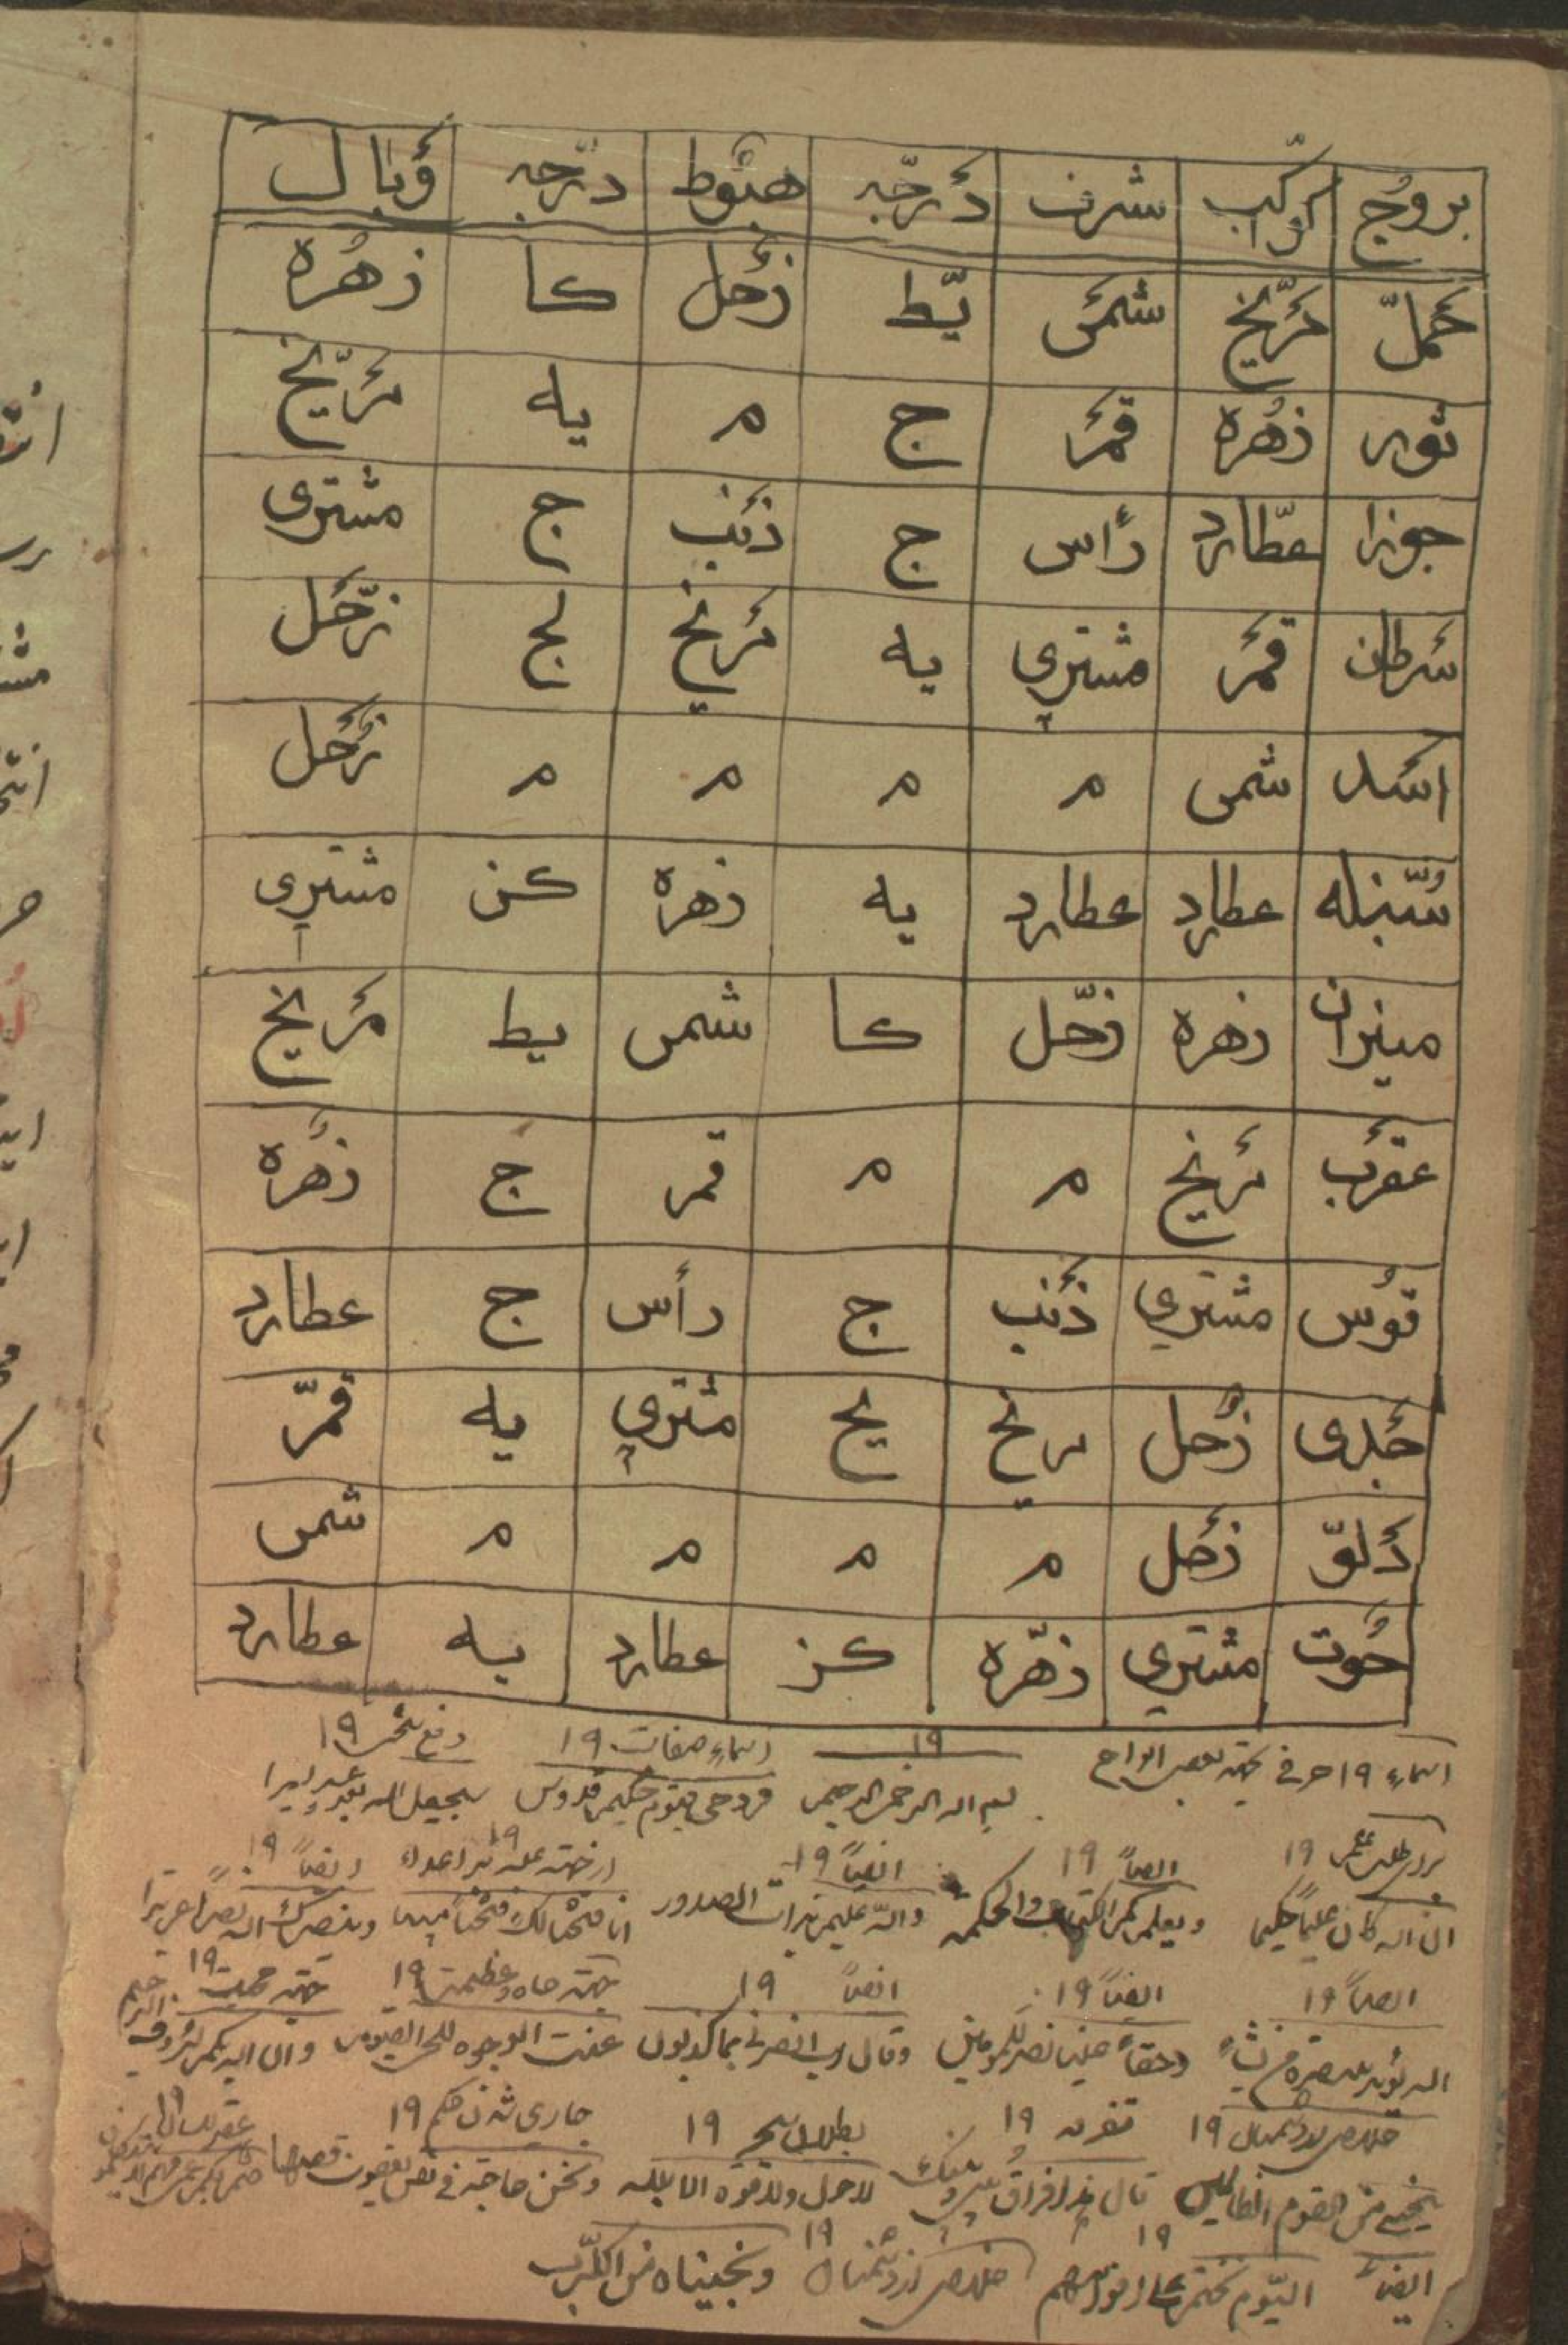 بروج کواکب شرف درجه هبوط درجه وبال
حمل مریخ شمس یط زحل کا زهره
ثور زهره قمر ج م یه مریخ
جوزا عطارد رأس ج ذنب ج مشتری
سرطان قمر مشتری یه مریخ لج زحل
اسد شمس م م م م زحل
سنبله عطارد عطارد یه زهره کز مشتری
میزان زهره زحل کا شمس یط مریخ
عقرب مریخ م م قمر ج زهره
قوس مشتری ذنب ج رأس ج عطارد
جدی زحل مریخ یح مشتری یه قمر
دلو زحل م م م م شمس
حوت مشتری زهره کز عطارد یه عطارد
اسماء ۱۹ حرفی جهة بعض الواح ۱۹ اسماء صفات ۱۹ دفع ۱۹
بسم الله الرحمن الرحیم فرد حی قیوم حکیم قدوس سیجعل الله بعد عسر یسرا
۱۹ ایضاً ۱۹ ایضاً ۱۹ ۱۹ ایضاً ۱۹
ان الله کان علیما حکیما ویعلمکم الکتاب والحکمة والله علیم بذات الصدور انا فتحنا لک فتحا مبینا وینصرک الله نصرا عزیزا
ایضاً ۱۹ ایضاً ۱۹ ایضاً ۱۹ جهة جاه وعظمت ۱۹ جهة ۱۹
الله یؤید بنصره من یشاء وحقا علینا نصر المؤمنین وقال رب انصرنی بما کذبون عنت الوجوه للحی القیوم وان الله بکم لرؤف الرحیم
خلاص ۱۹ تفرقه ۱۹ بطلان سحر ۱۹ جاری شدن حکم ۱۹ ۱۹
من القوم الظالمین قال هذا فراق بینی وبینک لا حول ولا قوة الا بالله حاجة فی نفس یعقوب قضاها
ایضاً الیوم نختم علی افواههم ۱۹ خلاص از دشمنان ۱۹ ونجیناه من الکرب